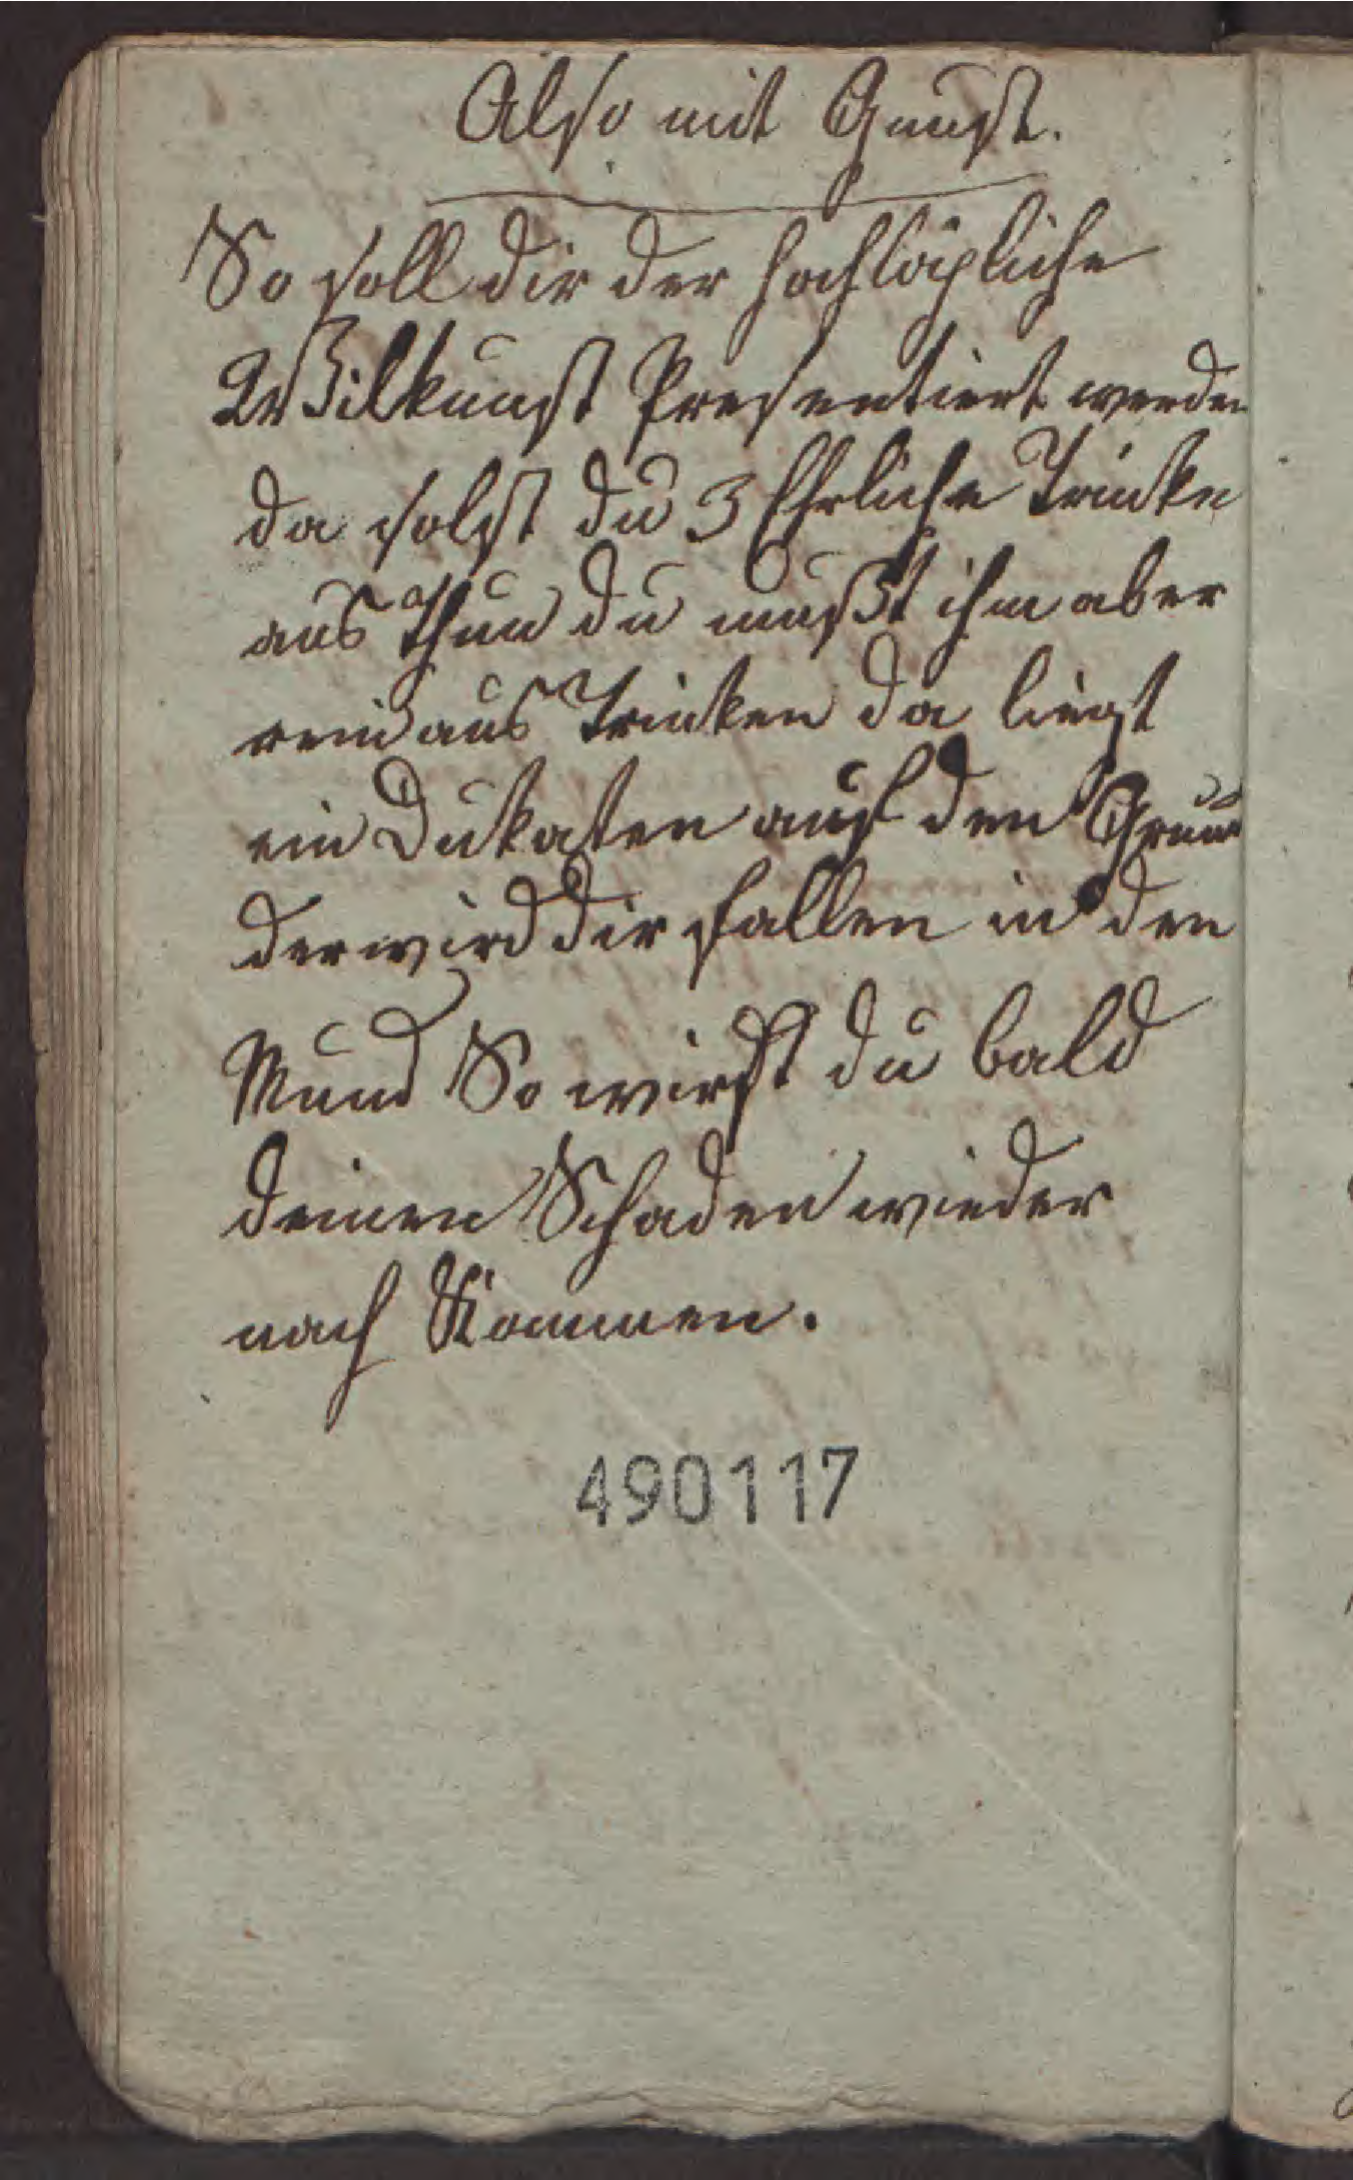 Also mit Gunst.
So soll dir der hochlöpliche
Wilkunst Presentiert werden
da solst du 3 Ehrliche Trinke
aus Thun du mußt ihm aber
rein aus Trinken da liegt
ein Dukaten auf den Grund
der wird dir fallen in den
Mund So wirst du bald
deinen Schaden wieder
nach Kommen.
490117